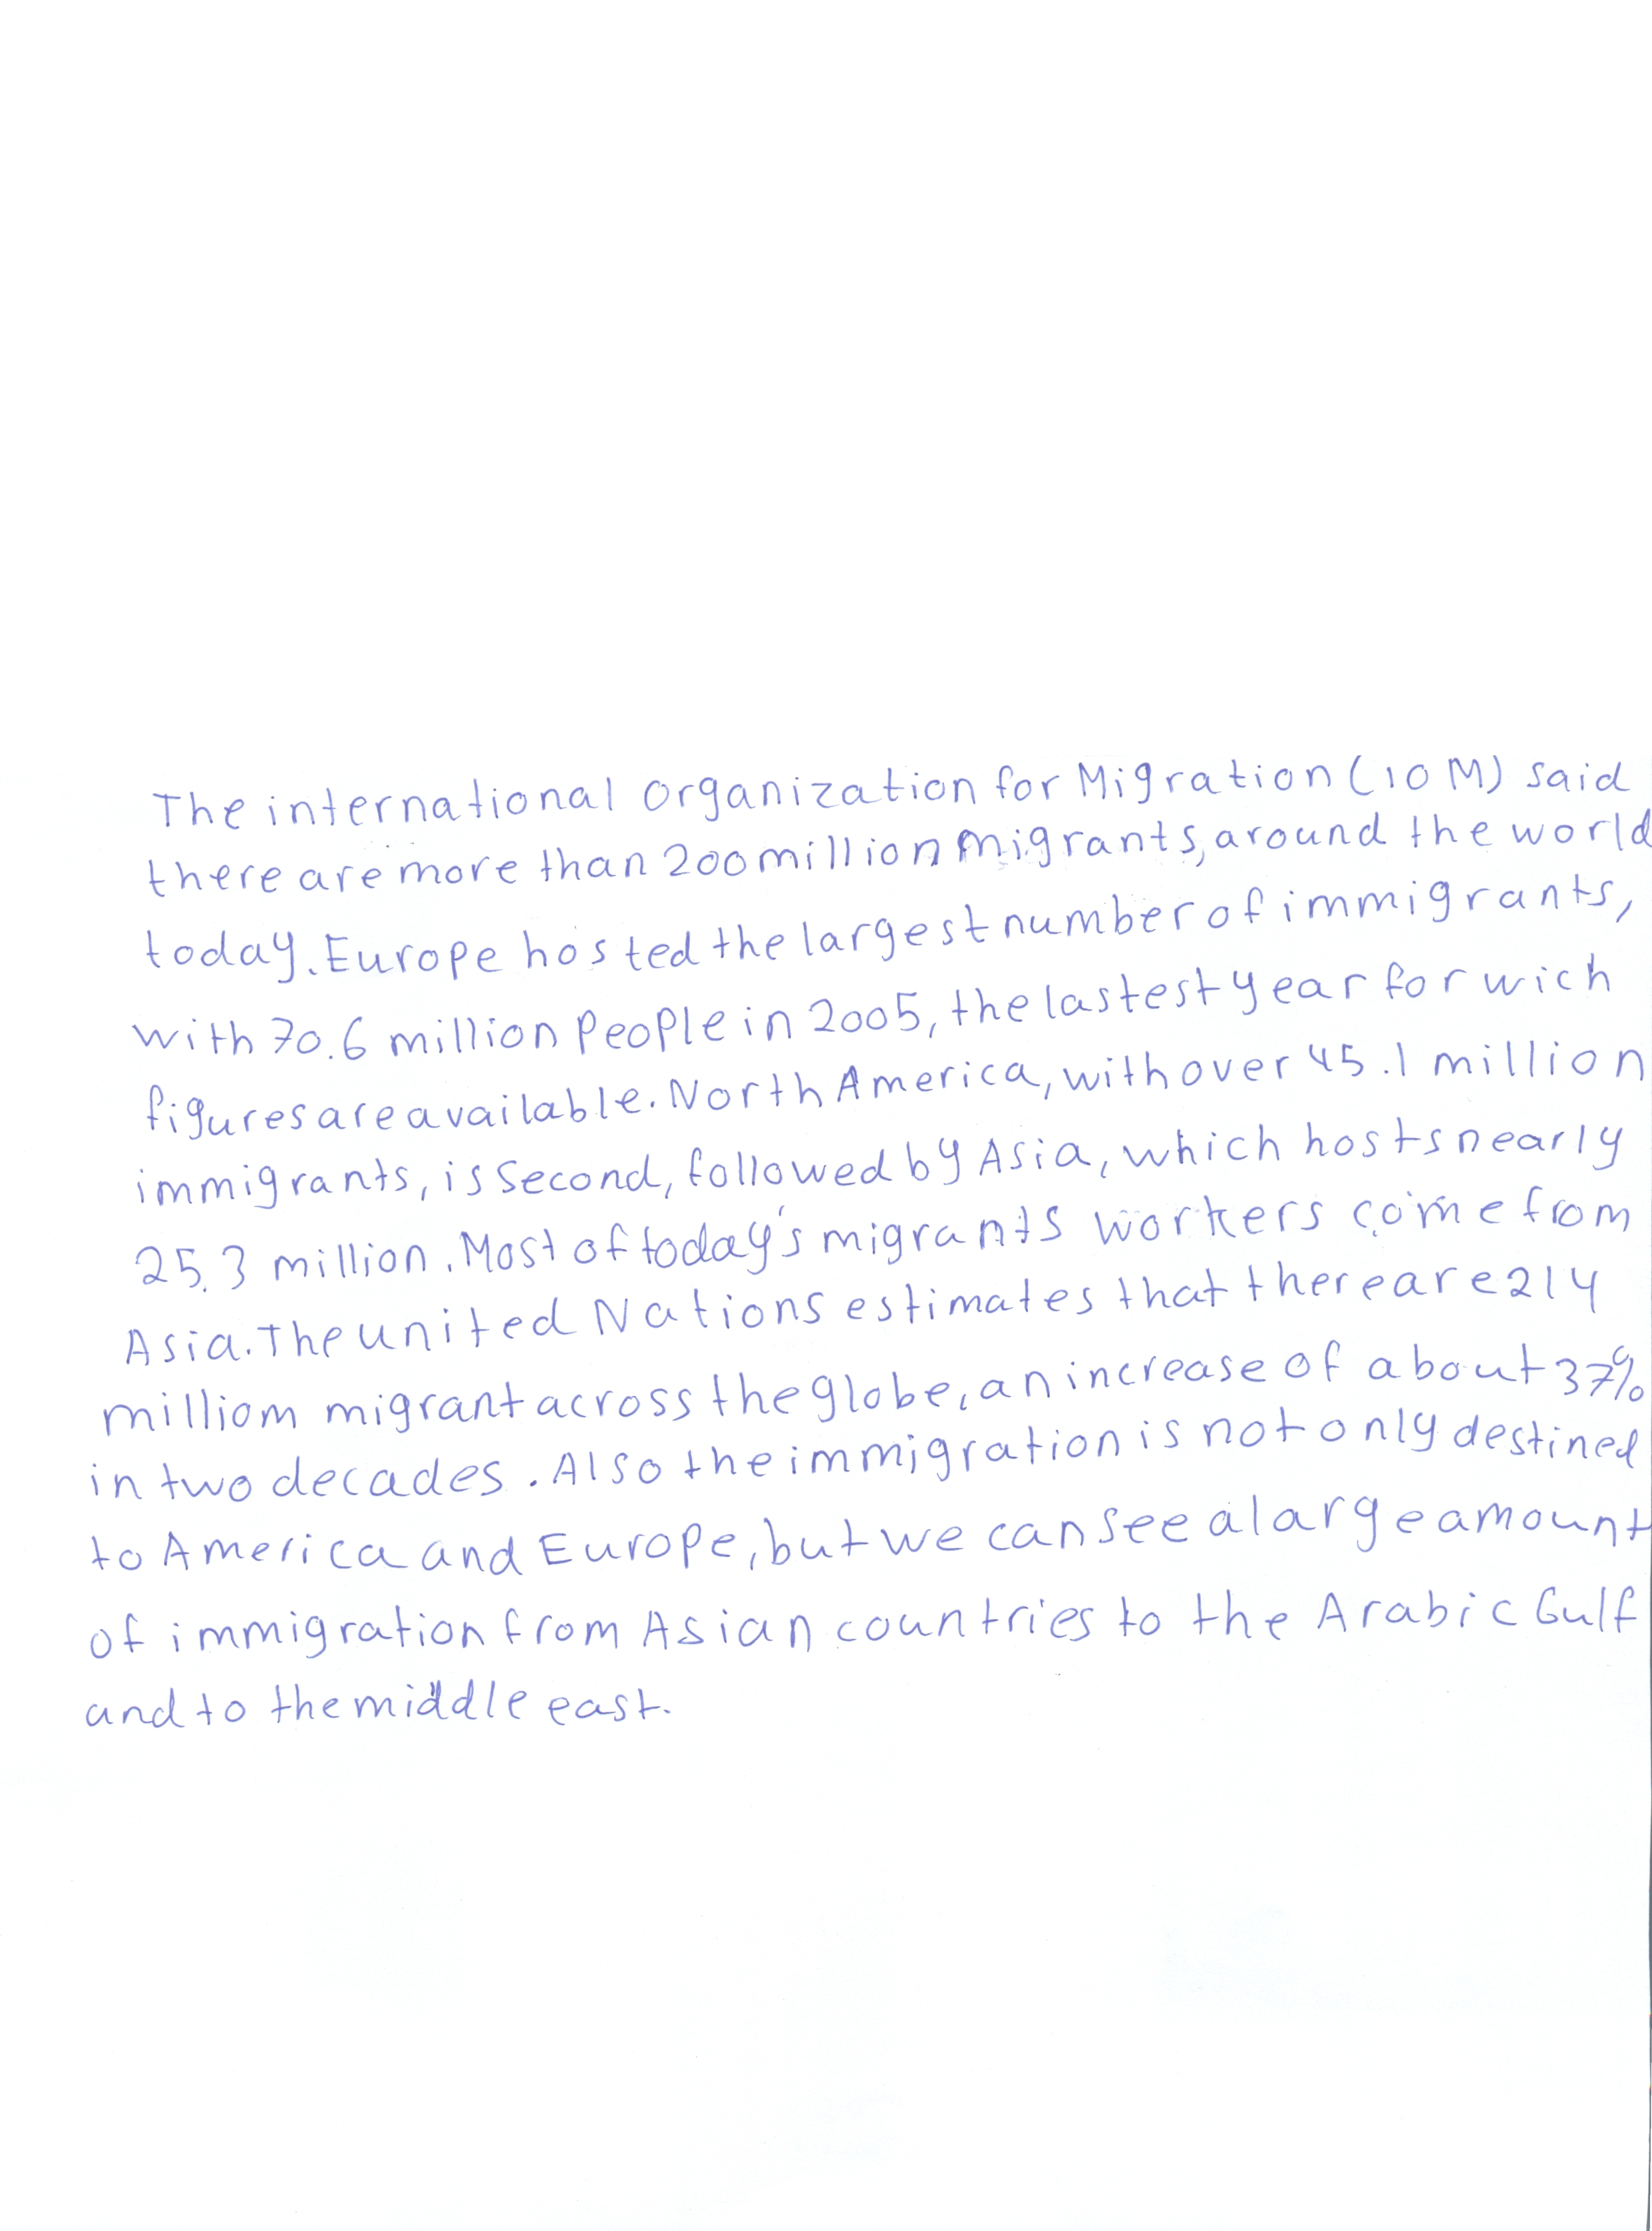 The international organization for Migration (IOM) said
there are more than 200 million migrants, around the world
today. Europe hosted the largest number of immigrants,
with 70.6 million people in 2005, the lastest year for wich
figures are available. North America, with over 45.1 million
immigrants, is second, followed by Asia, which hosts nearly
25.3 million. Most of today's migrants workers come from
Asia. The united Nations estimates that there are 214
milliom migrant across the globe, an increase of about 37%
in two decades. Also the immigration is not only destined
to America and Europe, but we can see a large amount
of immigration from Asian countries to the Arabic Gulf
and to the middle east.